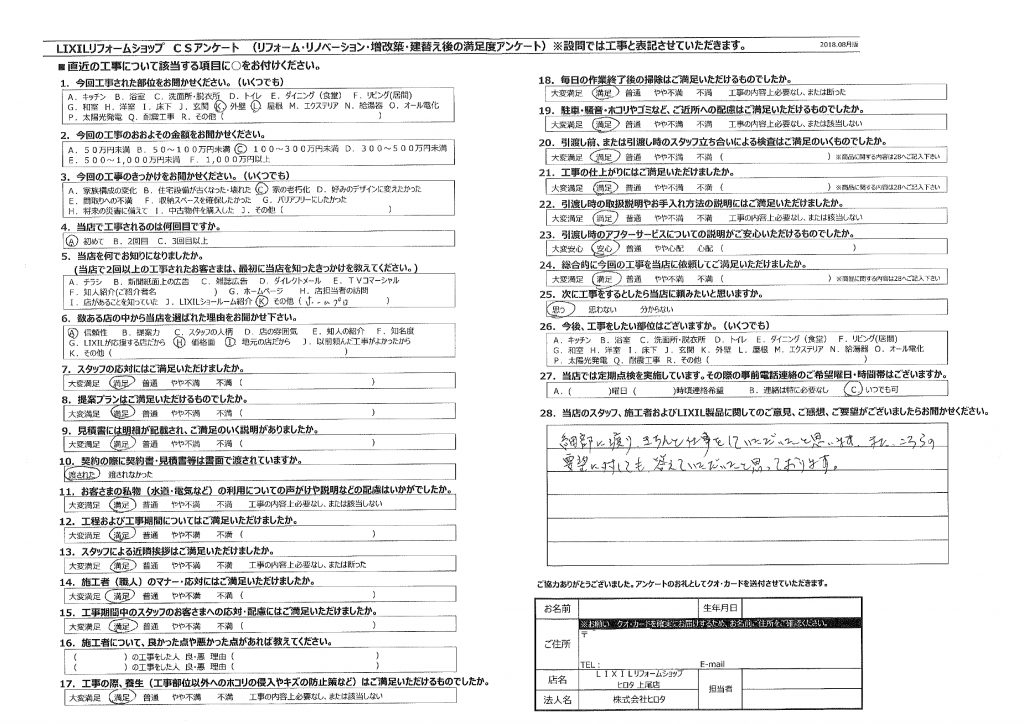 LIXILリフォームショップ CSアンケート （リフォーム・リノベーション・増改築・建替え後の満足度アンケート）※設問では工事と表記させていただきます。
2018.08月版
■直近の工事について該当する項目に○をお付けください。
1. 今回工事された部位をお聞かせください。（いくつでも）
A. キッチン B. 浴室 C. 洗面所・脱衣所 D. トイレ E. ダイニング（食堂） F. リビング(居間)
G. 和室 H. 洋室 I. 床下 J. 玄関 K. 外壁 L. 屋根 M. エクステリア N. 給湯器 O. オール電化
P. 太陽光発電 Q. 耐震工事 R. その他（ ）
2. 今回の工事のおおよその金額をお聞かせください。
A. 50万円未満 B. 50～100万円未満 C. 100～300万円未満 D. 300～500万円未満
E. 500～1,000万円未満 F. 1,000万円以上
3. 今回の工事のきっかけをお聞かせください。（いくつでも）
A. 家族構成の変化 B. 住宅設備が古くなった・壊れた C. 家の老朽化 D. 好みのデザインに変えたかった
E. 間取りへの不満 F. 収納スペースを確保したかった G. バリアフリーにしたかった
H. 将来の災害に備えて I. 中古物件を購入した J. その他（ ）
4. 当店で工事されるのは何回目ですか。
A. 初めて B. 2回目 C. 3回目以上
5. 当店を何でお知りになりましたか。
(当店で2回以上の工事されたお客さまは、最初に当店を知ったきっかけを教えてください。)
A. チラシ B. 新聞紙面上の広告 C. 雑誌広告 D. ダイレクトメール E. TVコマーシャル
F. 知人紹介(ご紹介者名 ) G. ホームページ H. 店担当者の訪問
I. 店があることを知っていた J. LIXILショールーム紹介 K. その他（ ）
6. 数ある店の中から当店を選ばれた理由をお聞かせ下さい。
A. 信頼性 B. 提案力 C. スタッフの人柄 D. 店の雰囲気 E. 知人の紹介 F. 知名度
G. LIXILが応援する店だから H. 価格面 I. 地元の店だから J. 以前頼んだ工事がよかったから
K. その他（ ）
7. スタッフの応対にはご満足いただけましたか。
大変満足 満足 普通 やや不満 不満（ ）
8. 提案プランはご満足いただけるものでしたか。
大変満足 満足 普通 やや不満 不満（ ）
9. 見積書には明細が記載され、ご満足のいく説明がありましたか。
大変満足 満足 普通 やや不満 不満（ ）
10. 契約の際に契約書・見積書等は書面で渡されていますか。
渡された 渡されなかった
11. お客さまの私物（水道・電気など）の利用についての声がけや説明などの配慮はいかがでしたか。
大変満足 満足 普通 やや不満 不満 工事の内容上必要なし、または該当しない
12. 工程および工事期間についてはご満足いただけましたか。
大変満足 満足 普通 やや不満 不満（ ）
13. スタッフによる近隣挨拶はご満足いただけましたか。
大変満足 満足 普通 やや不満 不満 工事の内容上必要なし、または断った
14. 施工者（職人）のマナー・応対にはご満足いただけましたか。
大変満足 満足 普通 やや不満 不満（ ）
15. 工事期間中のスタッフのお客さまへの応対・配慮にはご満足いただけましたか。
大変満足 満足 普通 やや不満 不満（ ）
16. 施工者について、良かった点や悪かった点があれば教えてください。
（ ）の工事をした人 良・悪 理由（ ）
（ ）の工事をした人 良・悪 理由（ ）
17. 工事の際、養生（工事部位以外へのホコリの侵入やキズの防止策など）はご満足いただけるものでしたか。
大変満足 満足 普通 やや不満 不満 工事の内容上必要なし、または該当しない
18. 毎日の作業終了後の掃除はご満足いただけるものでしたか。
大変満足 満足 普通 やや不満 不満 工事の内容上必要なし、または断った
19. 駐車・騒音・ホコリやゴミなど、ご近所への配慮はご満足いただけるものでしたか。
大変満足 満足 普通 やや不満 不満 工事の内容上必要なし、または該当しない
20. 引渡し前、または引渡し時のスタッフ立ち合いによる検査はご満足のいくものでしたか。
大変満足 満足 普通 やや不満 不満（ ）※商品に関する内容は28へご記入下さい
21. 工事の仕上がりにはご満足いただけましたか。
大変満足 満足 普通 やや不満 不満（ ）※商品に関する内容は28へご記入下さい
22. 引渡し時の取扱説明やお手入れ方法の説明にはご満足いただけましたか。
大変満足 満足 普通 やや不満 不満 工事の内容上必要なし、または該当しない
23. 引渡し時のアフターサービスについての説明がご安心いただけるものでしたか。
大変安心 安心 普通 やや心配 心配（ ）
24. 総合的に今回の工事を当店に依頼してご満足いただけましたか。
大変満足 満足 普通 やや不満 不満（ ）※商品に関する内容は28へご記入下さい
25. 次に工事をするとしたら当店に頼みたいと思いますか。
思う 思わない 分からない
26. 今後、工事をしたい部位はございますか。（いくつでも）
A. キッチン B. 浴室 C. 洗面所・脱衣所 D. トイレ E. ダイニング（食堂） F. リビング(居間)
G. 和室 H. 洋室 I. 床下 J. 玄関 K. 外壁 L. 屋根 M. エクステリア N. 給湯器 O. オール電化
P. 太陽光発電 Q. 耐震工事 R. その他（ ）
27. 当店では定期点検を実施しています。その際の事前電話連絡のご希望曜日・時間帯はございますか。
A. （ ）曜日（ ）時頃連絡希望 B. 連絡は特に必要なし C. いつでも可
28. 当店のスタッフ、施工者およびLIXIL製品に関してのご意見、ご感想、ご要望がございましたらお聞かせください。
細部に渡り きちんと仕事をしていただいたと思います。また、こちらの
要望に対しても 答えていただいたと思っております。
ご協力ありがとうございました。アンケートのお礼としてクオ・カードを送付させていただきます。
お名前 生年月日
※お願い クオ・カードを確実にお届けするため、お名前、ご住所をご確認ください。
ご住所 〒
TEL： E-mail
店名 LIXILリフォームショップ ヒロタ 上尾店 担当者
法人名 株式会社ヒロタ